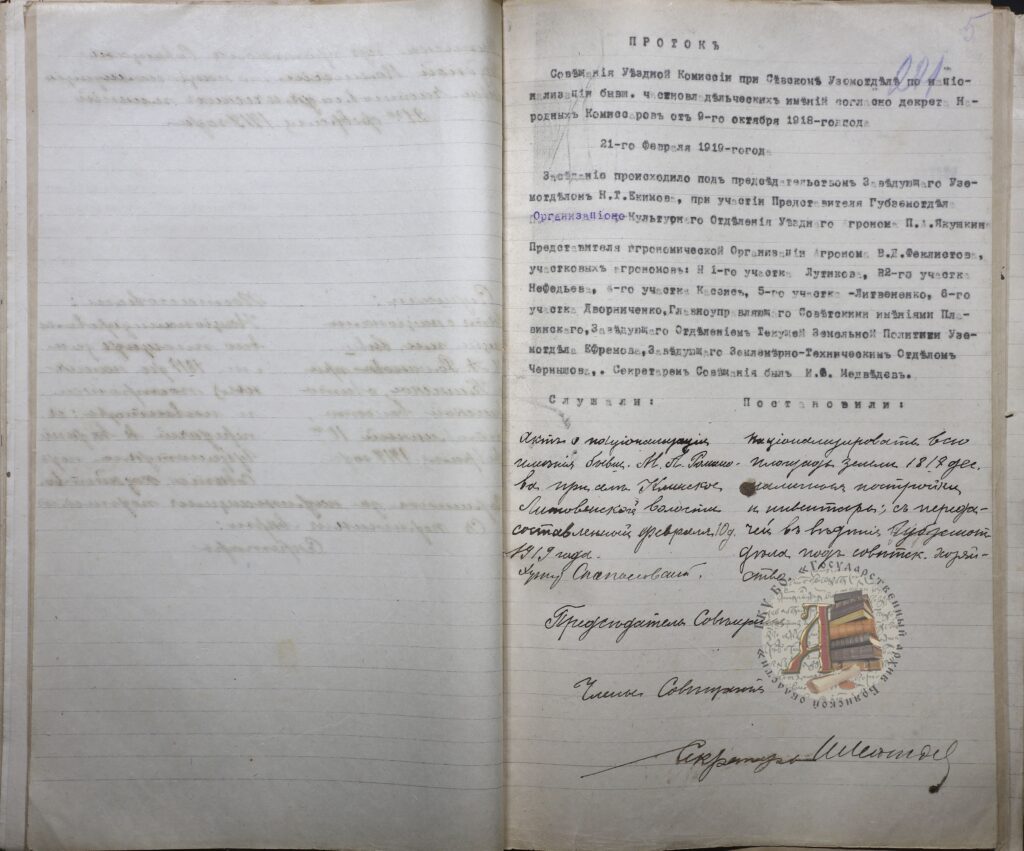 5
221
ПРОТОКЪ
Совѣщанія Уѣздной Комиссіи при Сѣвскомъ Уземотдѣлѣ по націо-
нализаціи бывш. частновладѣльческихъ имѣній согласно декрета На-
родныхъ Комиссаровъ отъ 9-го октября 1918-годгода
21-го Февраля 1919-гогода
Засѣданіе происходило подъ предсѣдательствомъ ЗавѣдующагоУзе-
мотдѣломъ Н.Т.Екимова, при участіи Представителя Губземотдѣла
Организаціоно-Культурнаго Отдѣленія Уѣзднаго Агронома П.А.Якушкина
Представителя Агрономической Организаціи Агронома В.Д.Феклистова,
участковыхъ агрономовъ: Н 1-го участка Лутикова, В2-го участка
Нефедьева, 4-го участка Кассисъ, 5-го участка -Литвененко, 6-го
участка Дворниченко,Главноуправляющаго Совѣтскими имѣніями Пля-
винскаго,Завѣдующаго Отдѣленіемъ Текущей Земельной Политики Узе-
мотдѣла Ефремова,Завѣдующаго Землемѣрно-Техническимъ Отдѣломъ
Чернышова,. Секретаремъ Совѣщанія былъ И.Ф. Медвѣдевъ.
Слушали: Постановили:
Актъ о націонализаціи Націонализировать всю
имѣнія бывш. М. П. Романо- площадь земли 1819 дес.
ва при сель Клинское постройки
Литовенской волости и инвентарь, съ переда-
составленный февраля 10 д. чей въ вѣдѣніе Губземот
1919 года. дѣла подъ совѣтск. хозяй-
ство
Предсѣдатель Совѣщанія
Члены Совѣщанія
Секретарь
ГКУ БО «Государственный архив Брянской области»